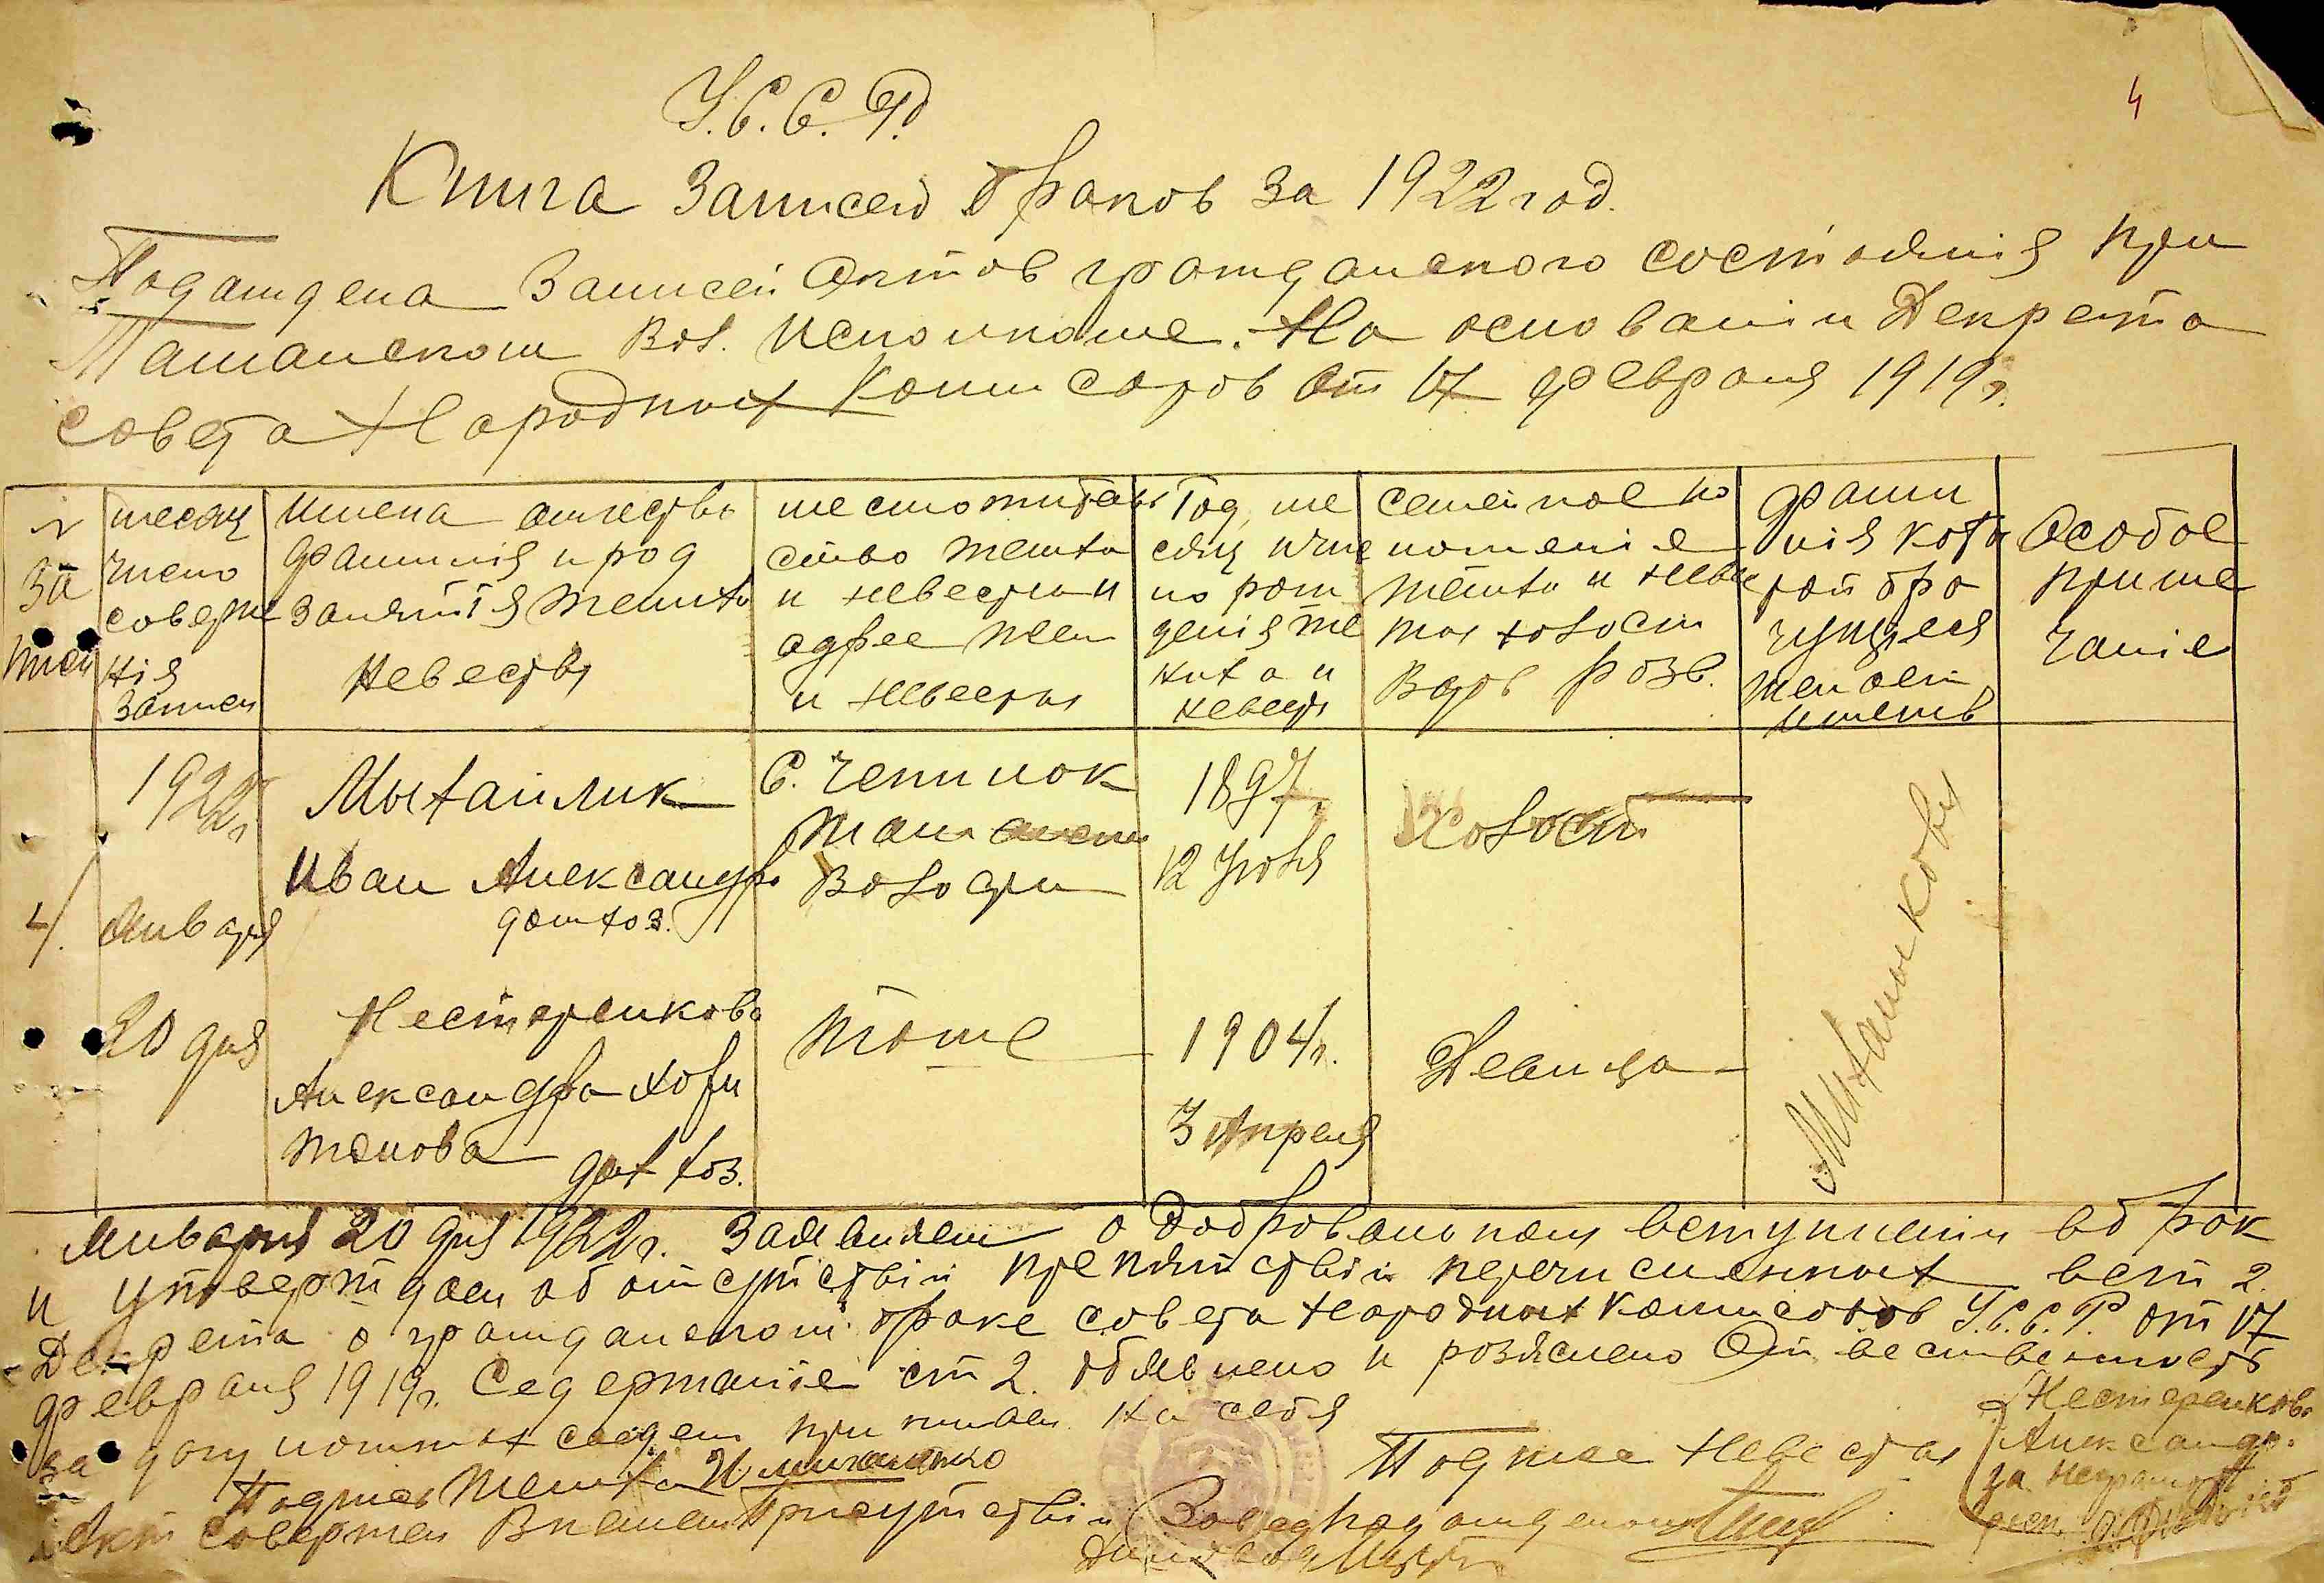 4
У.С.С.Р.
Книга Записей браков за 1922 год.
Податдела Записей Актов гражданского состояния при
Ташанском Вол. Исполкоме. На основании Декрета
совета Народных Комисаров от 17 февраля 1919 г.
№ за писи
месяц число соверше нія записи
имена отчество фамилия и род занятія жениха невесты
место жительство жениха и невесты и адрес жен и невесты
Год, ме сяц и чис ло рож денія же ниха и невесты
семейное по ложеніе жениха и неве холост вдов розв.
фами лія кото рой бра чущиеся желают именов
Особое приме чаніе
1922 г.
Января
20 дня
4.
Михайлик
Иван Александр
домхоз.
С. Чепилок
Ташанск
Волости
1897
12 Июля
Холост
Нестеренкова
Александра Хари
тонова домхоз.
тоже
1904 г.
3 Апреля
Девица
Января 20 дня 1922 г. Заявляем о добровольном вступлении в брак
и утверждаем об отсутствіи препятствій перечисленных в ст 2.
Декрета о гражданском браке совета Народных Комисаров У.С.С.Р. от 17
февраля 1919 г. Седержаніе ст 2. обявлено и розяснено Ответственность
за дачу ложных сведен принимаем на себя
Подпись Жениха И
Подпись Невесты
Нестеренкова
Александр.
за неграмот
Акт совершен В нашем Присутствіи Завед Податделом